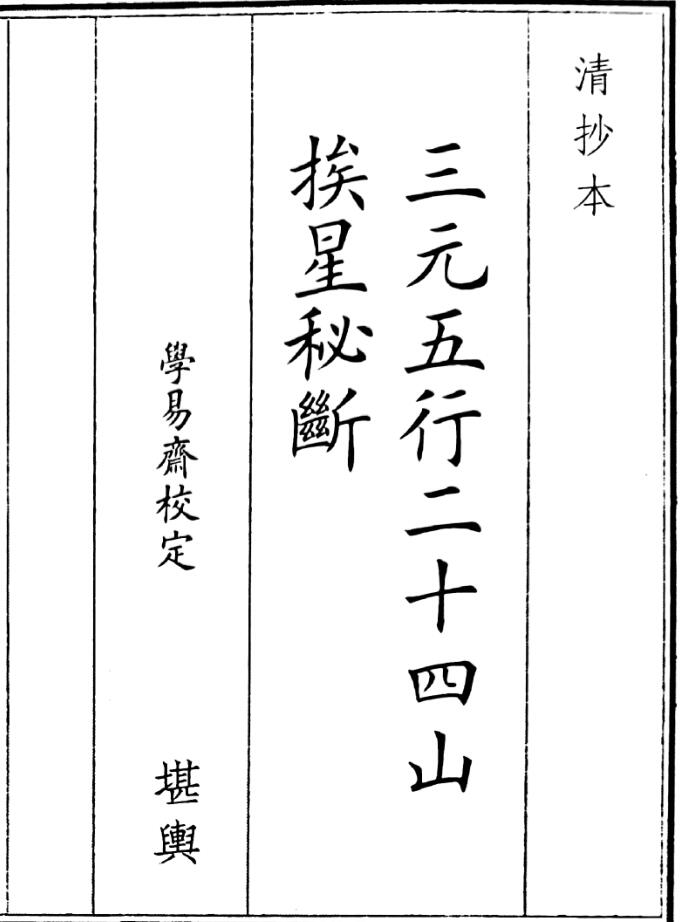 清抄本
三元五行二十四山
挨星秘斷
學易齋校定
堪輿